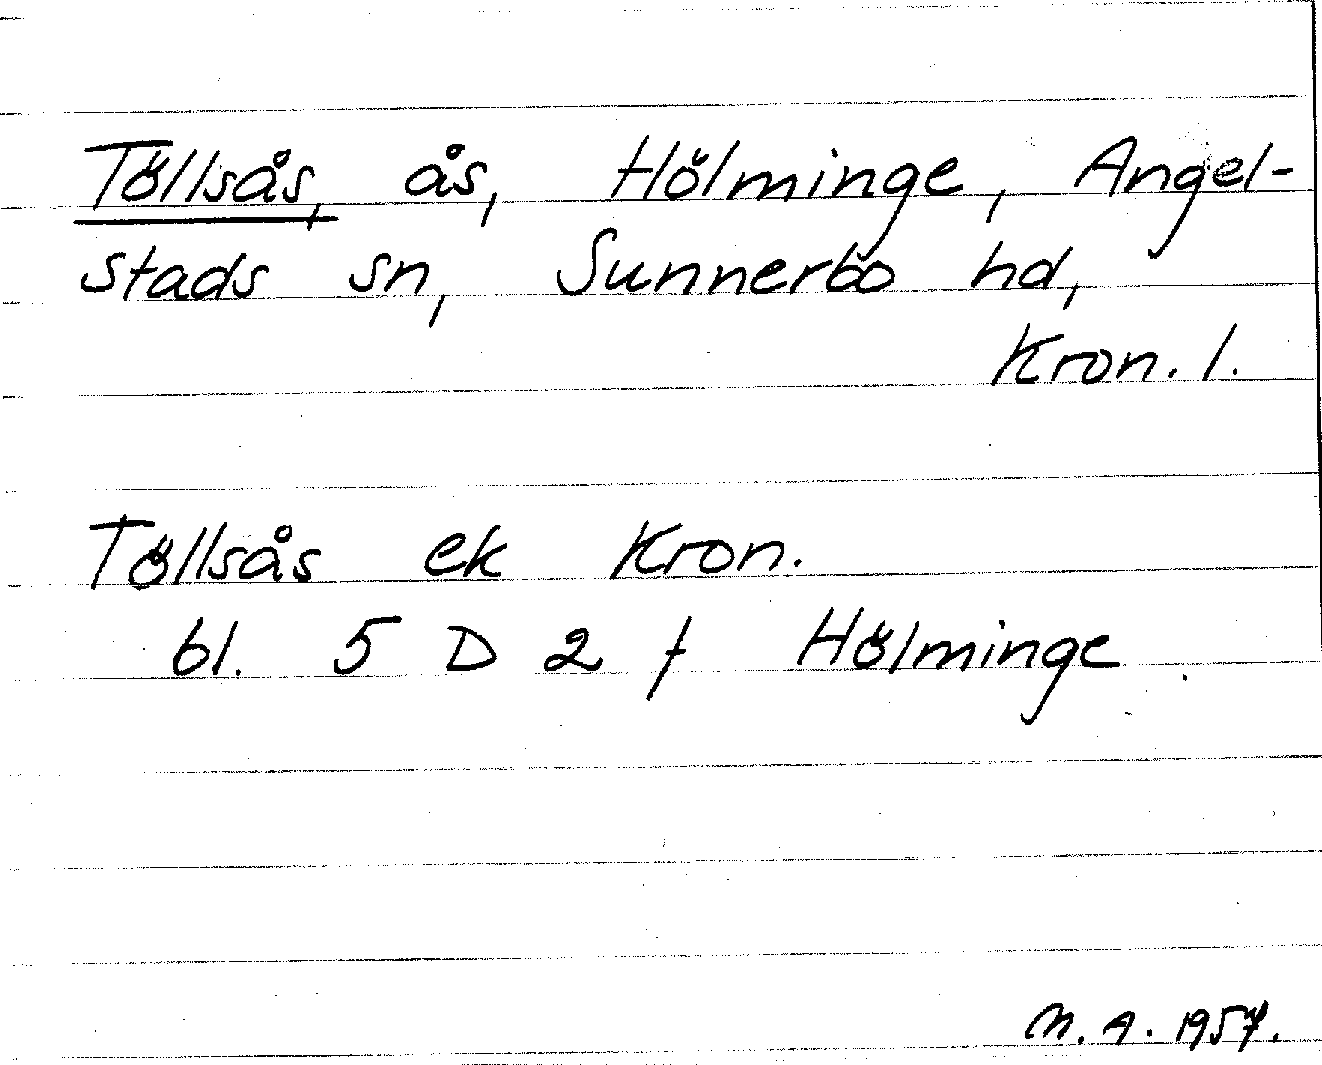 Töllsås, ås, Hölminge, Angel-
stads sn, Sunnerbo hd,
Kron. l.
Töllsås ek Kron.
bl. 5 D 2 f Hölminge
M. A. 1957.